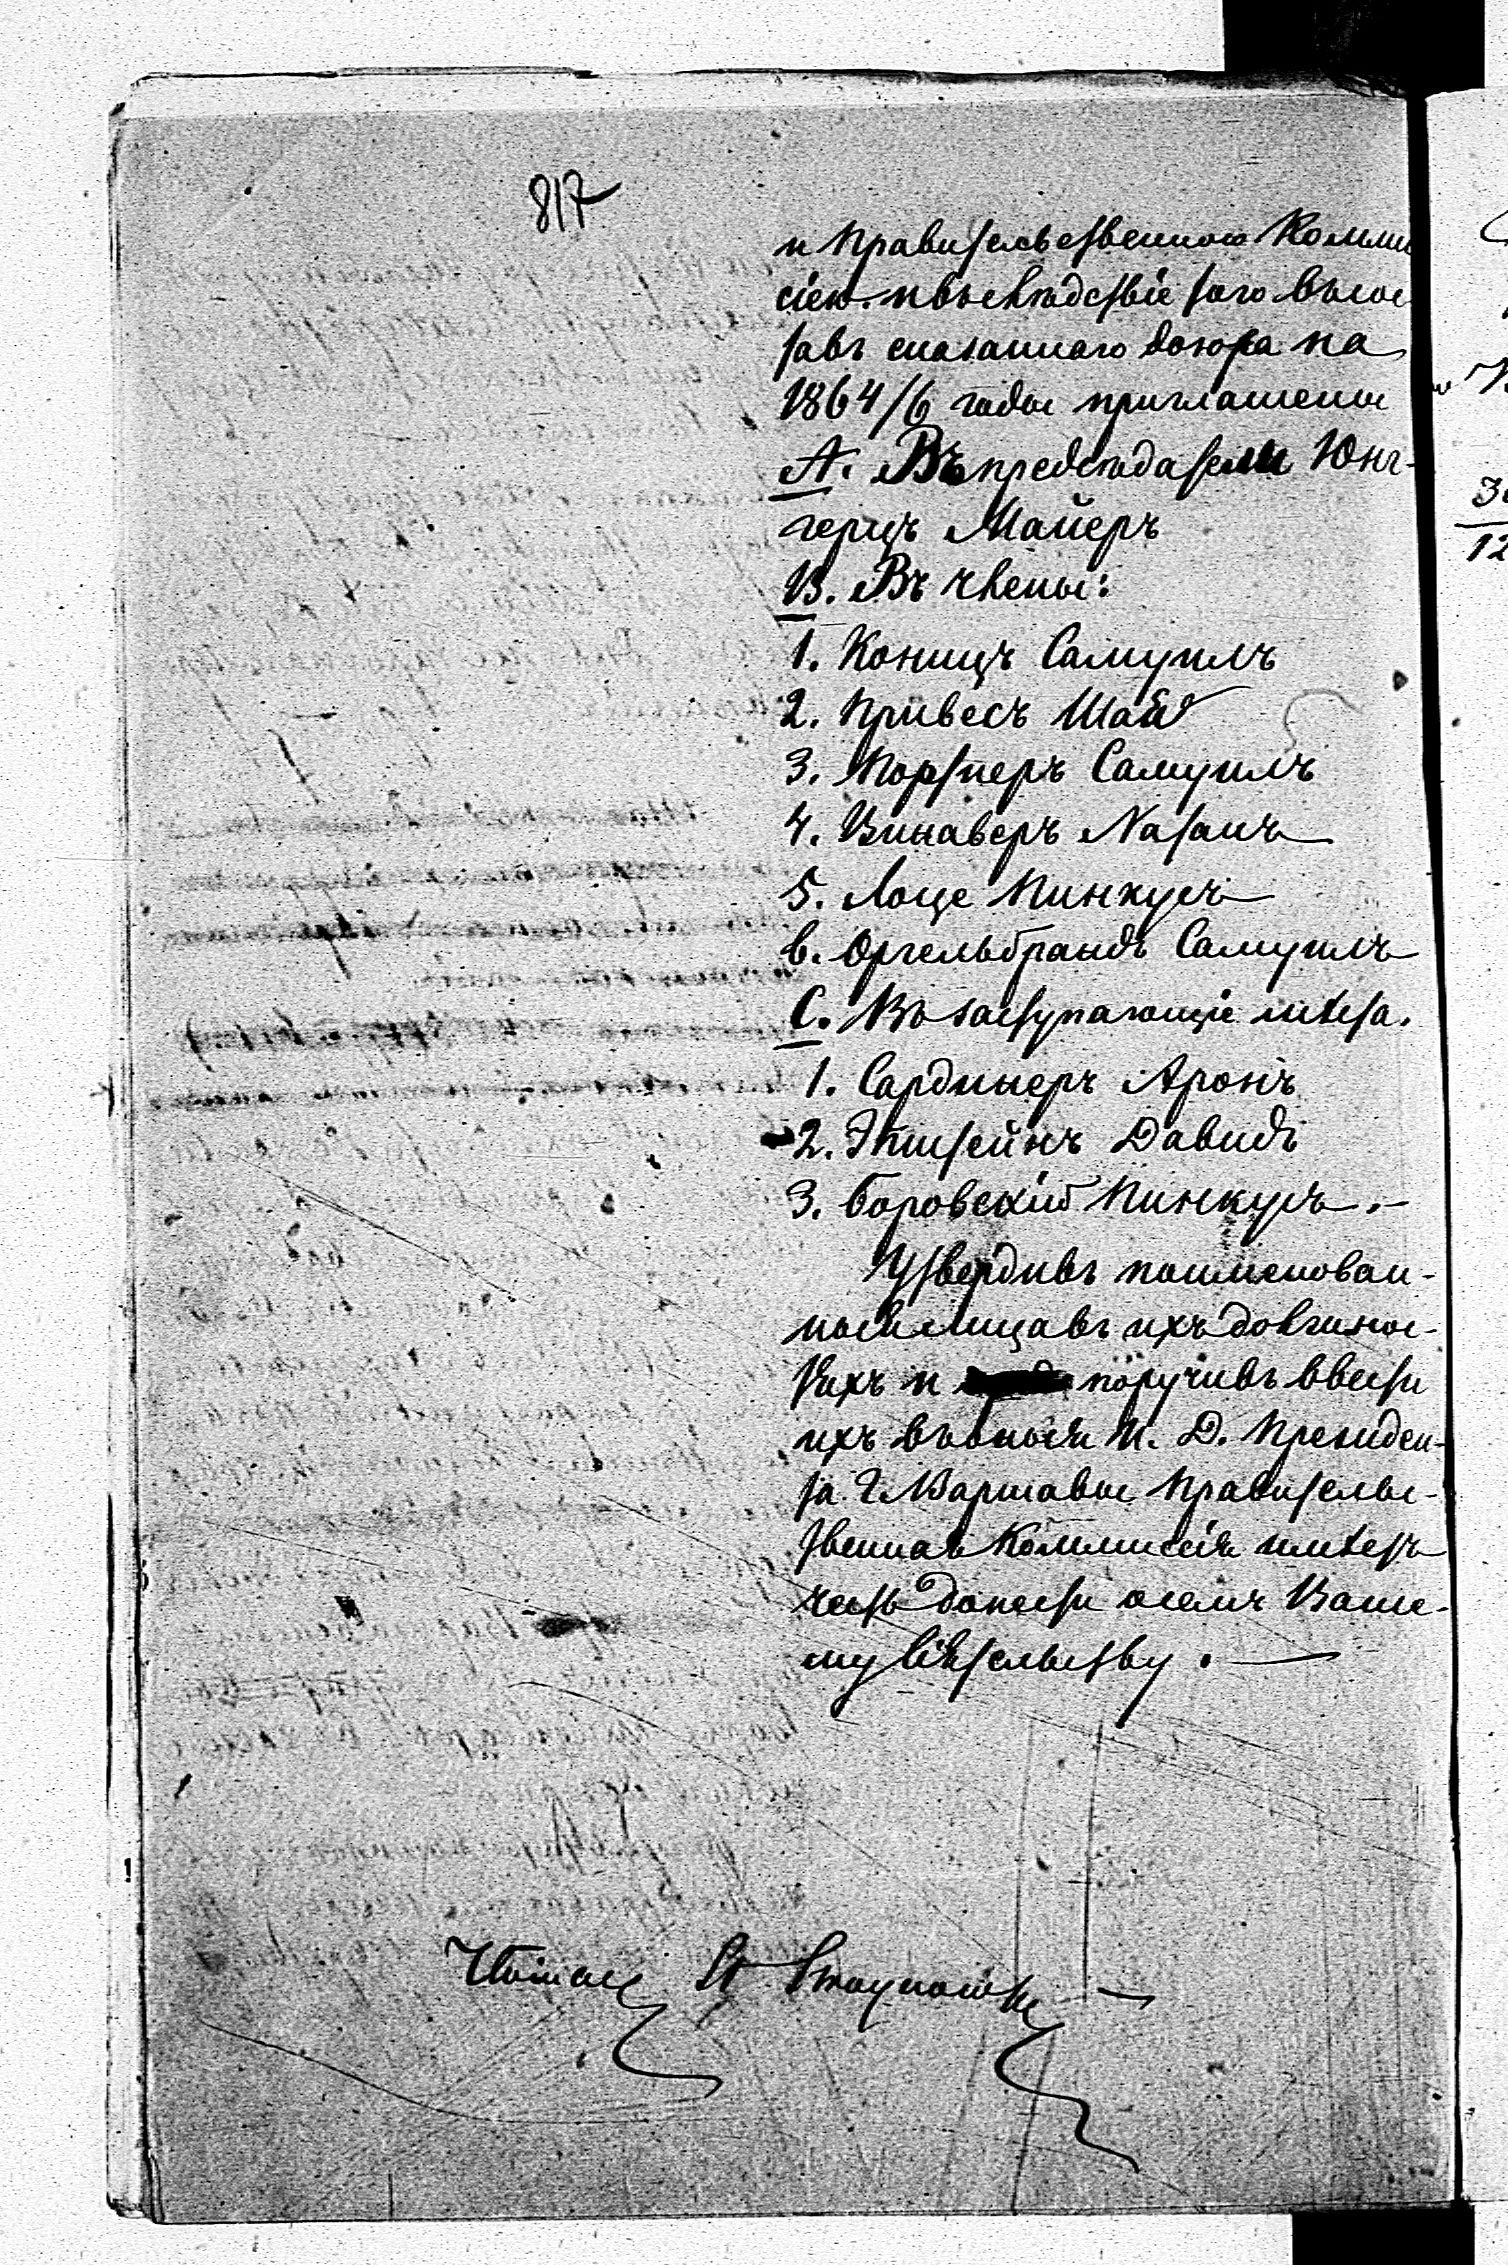 817
и Правительственною Комми
сіею. и въ слѣдствіе того въ сос
тавъ сказаннаго дозора на
1864/6 годы приглашены
А. Въ предсѣдатели Юнг-
герцъ Майеръ
В. Въ члены:
1. Коницъ Самуилъ
2. Привесъ Шая
3. Портнеръ Самуилъ
4. Винаверъ Натанъ
5. Лоце Пинкусъ
6. Оргельбрандъ Самуилъ
С. Въ заступающіе мѣста.
1. Сардинеръ Аронъ
2. Эпштейнъ Давидъ
3. Боровскій Пинкусъ.-
Утвердивъ поименован-
ныя лица въ ихъ должнос-
тяхъ и поручивъ ввести
ихъ въ оныя И. Д. Президен-
та Г. Варшавы Правительс-
твенная Коммисія имѣетъ
честь донести о семъ Ваше-
му Сіятельству. —
St